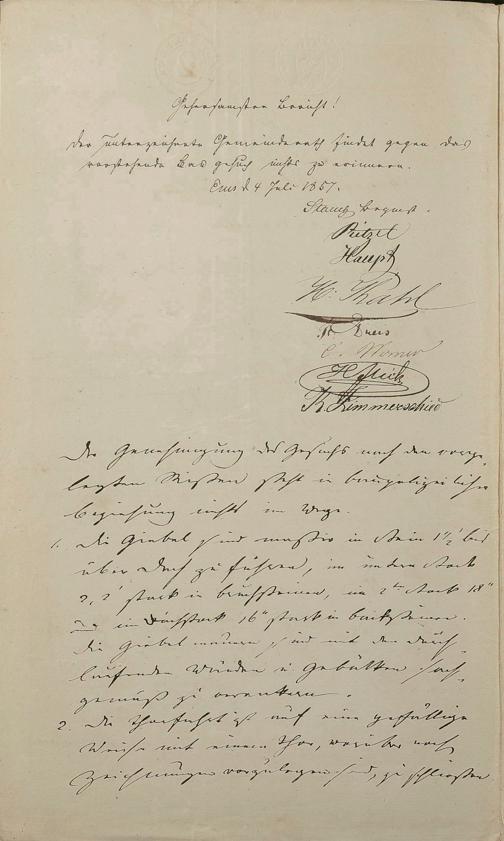 Gehorsamster Bericht!
Der unterzeichnete Gemeinderath findet gegen das
vorstehende Baugesuch nichts zu erinnern.
Ems d. 4 Juli 1857.
Pitzel
Haupt
H. Kahl
H. Muck
K. Zimmerschied
Der Genehmigung des Gesuchs nach den vorge-
legten Rissen steht in baupolizeilicher
Beziehung nichts im Wege.
1. Die Giebel sind massiv in Stein 1½' bis
über Dach zu führen, im untern Stock
2,2' stark in Bruchsteinen, im 2ten Stock 18"
im Dachstock 16" stark in Backsteinen.
Die Giebelmauern sind mit den durch-
laufenden Wänden u Gebälken sach-
gemäß zu verankern.
2. Die Thorfahrt ist auf eine gefällige
Weise mit einem Thor, worüber noch
Zeichnungen vorzulegen sind, zu schließen